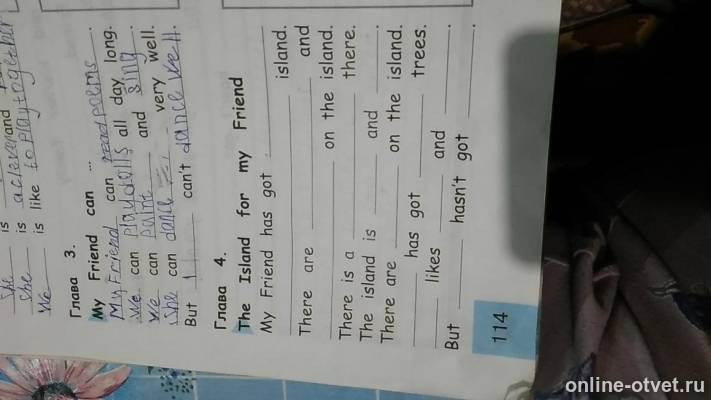 She is
She is a clever and
We is like to play together
Глава 3.
My Friend can ...
My Friend can read poems.
We can play dolls all day long.
We can paint and sing.
She can dance very well.
But I can't dance well.
Глава 4.
The Island for my Friend
My Friend has got
island.
There are and
on the island.
There is a there.
The island is and .
There are on the island.
has got trees.
likes and .
But hasn't got .
114
online-otvet.ru